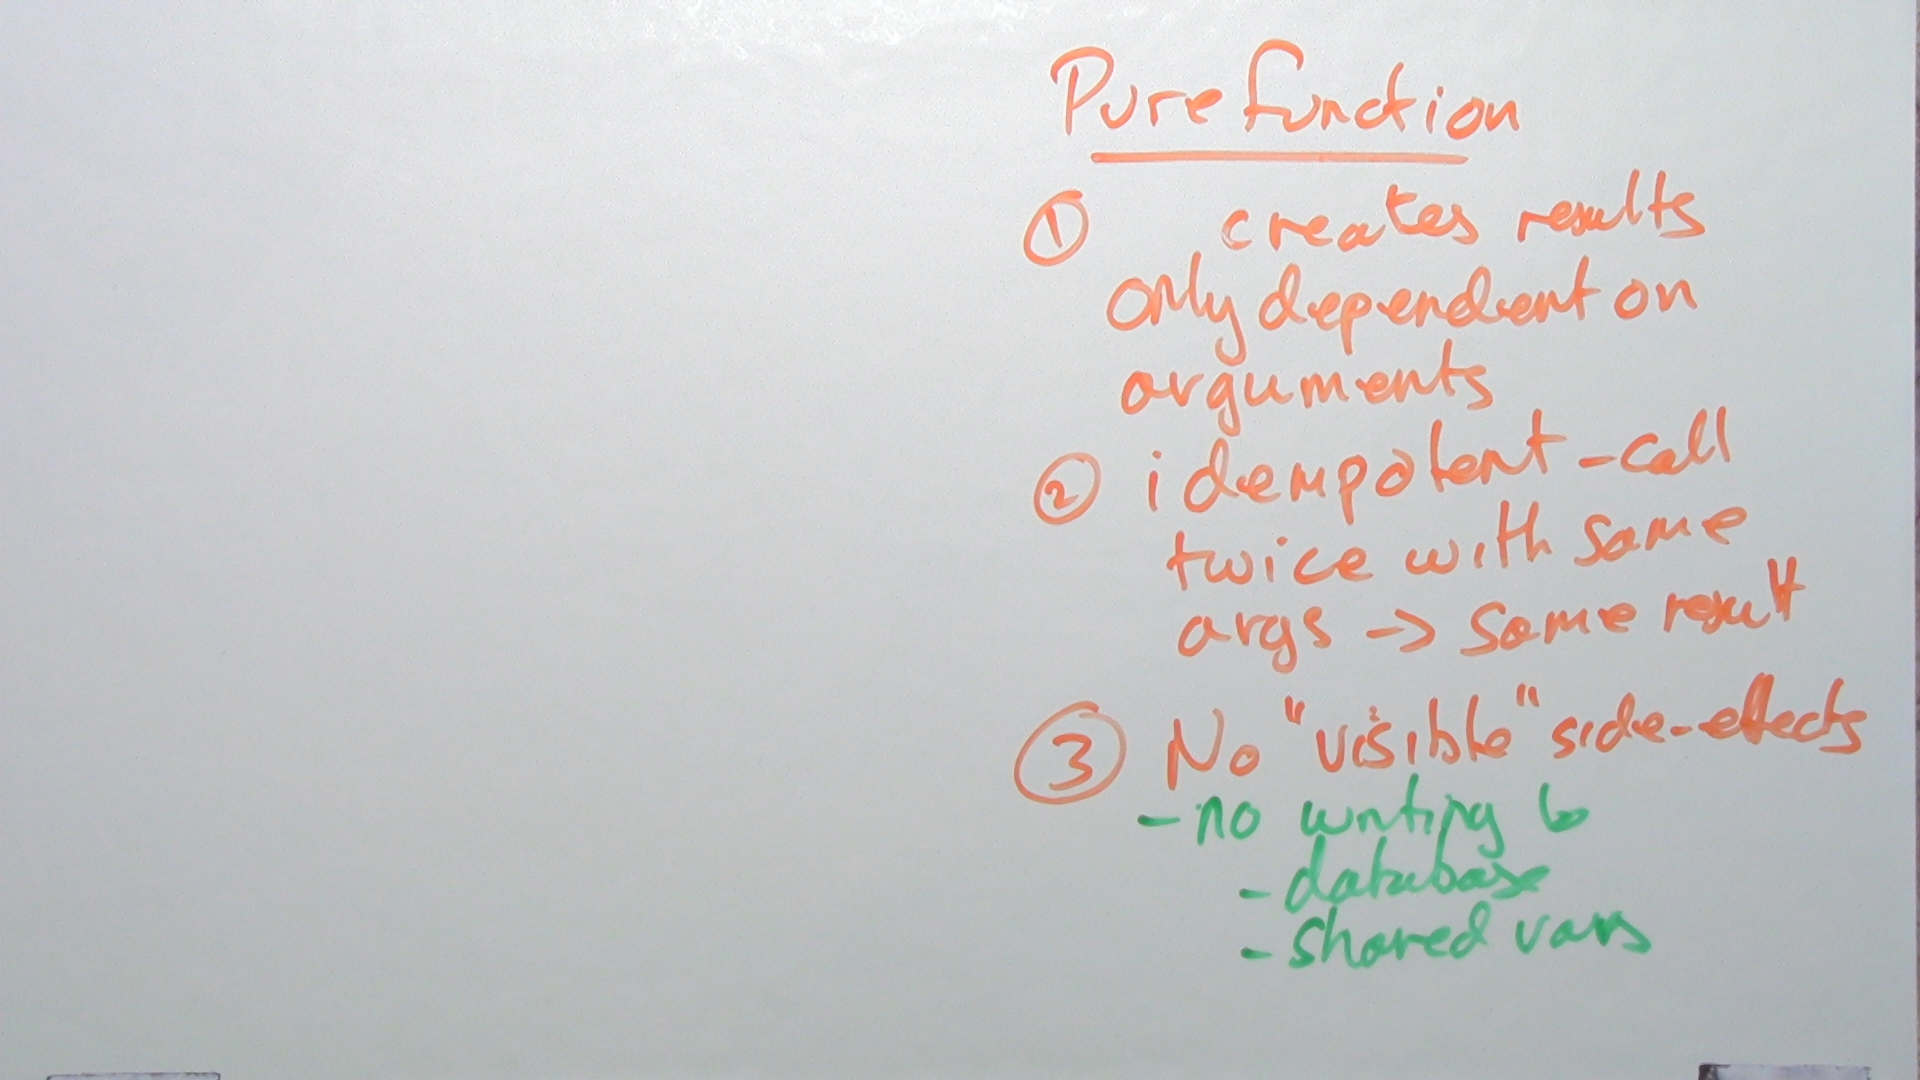 Pure function
① creates results
only dependent on
arguments
② idempotent - call
twice with same
args -> same result
③ No "visible" side-effects
- no writing to
- database
- shared vars